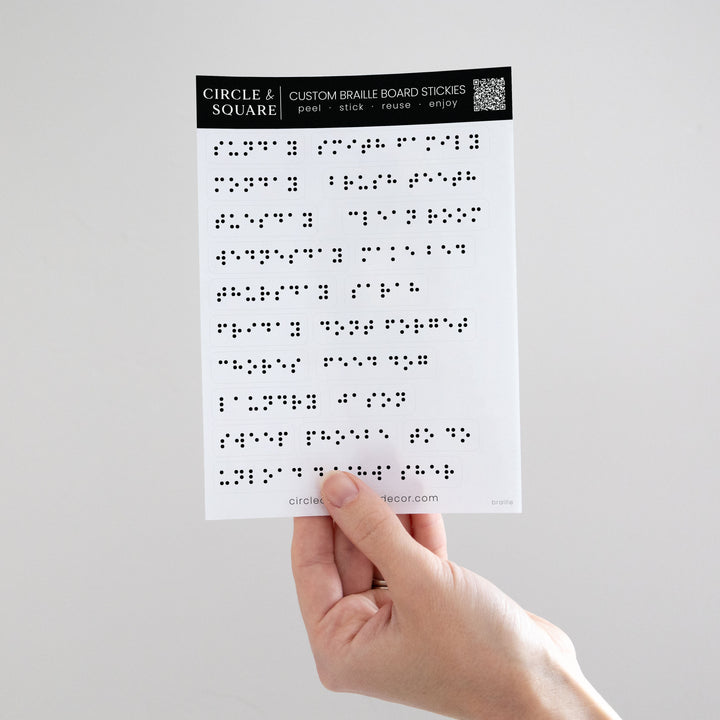 CIRCLE & SQUARE
CUSTOM BRAILLE BOARD STICKIES
peel · stick · reuse · enjoy
⠎⠥⠝⠙⠁⠽ ⠎⠍⠊⠞⠓ ⠋⠁⠍⠊⠇⠽
⠍⠕⠝⠙⠁⠽ ⠃⠗⠥⠎⠓ ⠞⠑⠑⠞⠓
⠞⠥⠑⠎⠙⠁⠽ ⠉⠇⠑⠁⠝ ⠗⠕⠕⠍
⠺⠑⠙⠝⠑⠎⠙⠁⠽ ⠍⠁⠅⠑ ⠃⠑⠙
⠞⠓⠥⠗⠎⠙⠁⠽ ⠎⠁⠗⠁⠓
⠋⠗⠊⠙⠁⠽ ⠙⠕⠝⠞ ⠋⠕⠗⠛⠑⠞
⠉⠓⠕⠗⠑⠎ ⠋⠑⠑⠙ ⠙⠕⠛
⠇⠁⠥⠝⠙⠗⠽ ⠚⠁⠎⠕⠝
⠎⠺⠑⠑⠏ ⠏⠓⠕⠑⠃⠑ ⠞⠕ ⠙⠕
⠥⠝⠇⠕⠁⠙ ⠙⠊⠎⠓⠺⠁⠎⠓⠑⠗
braille